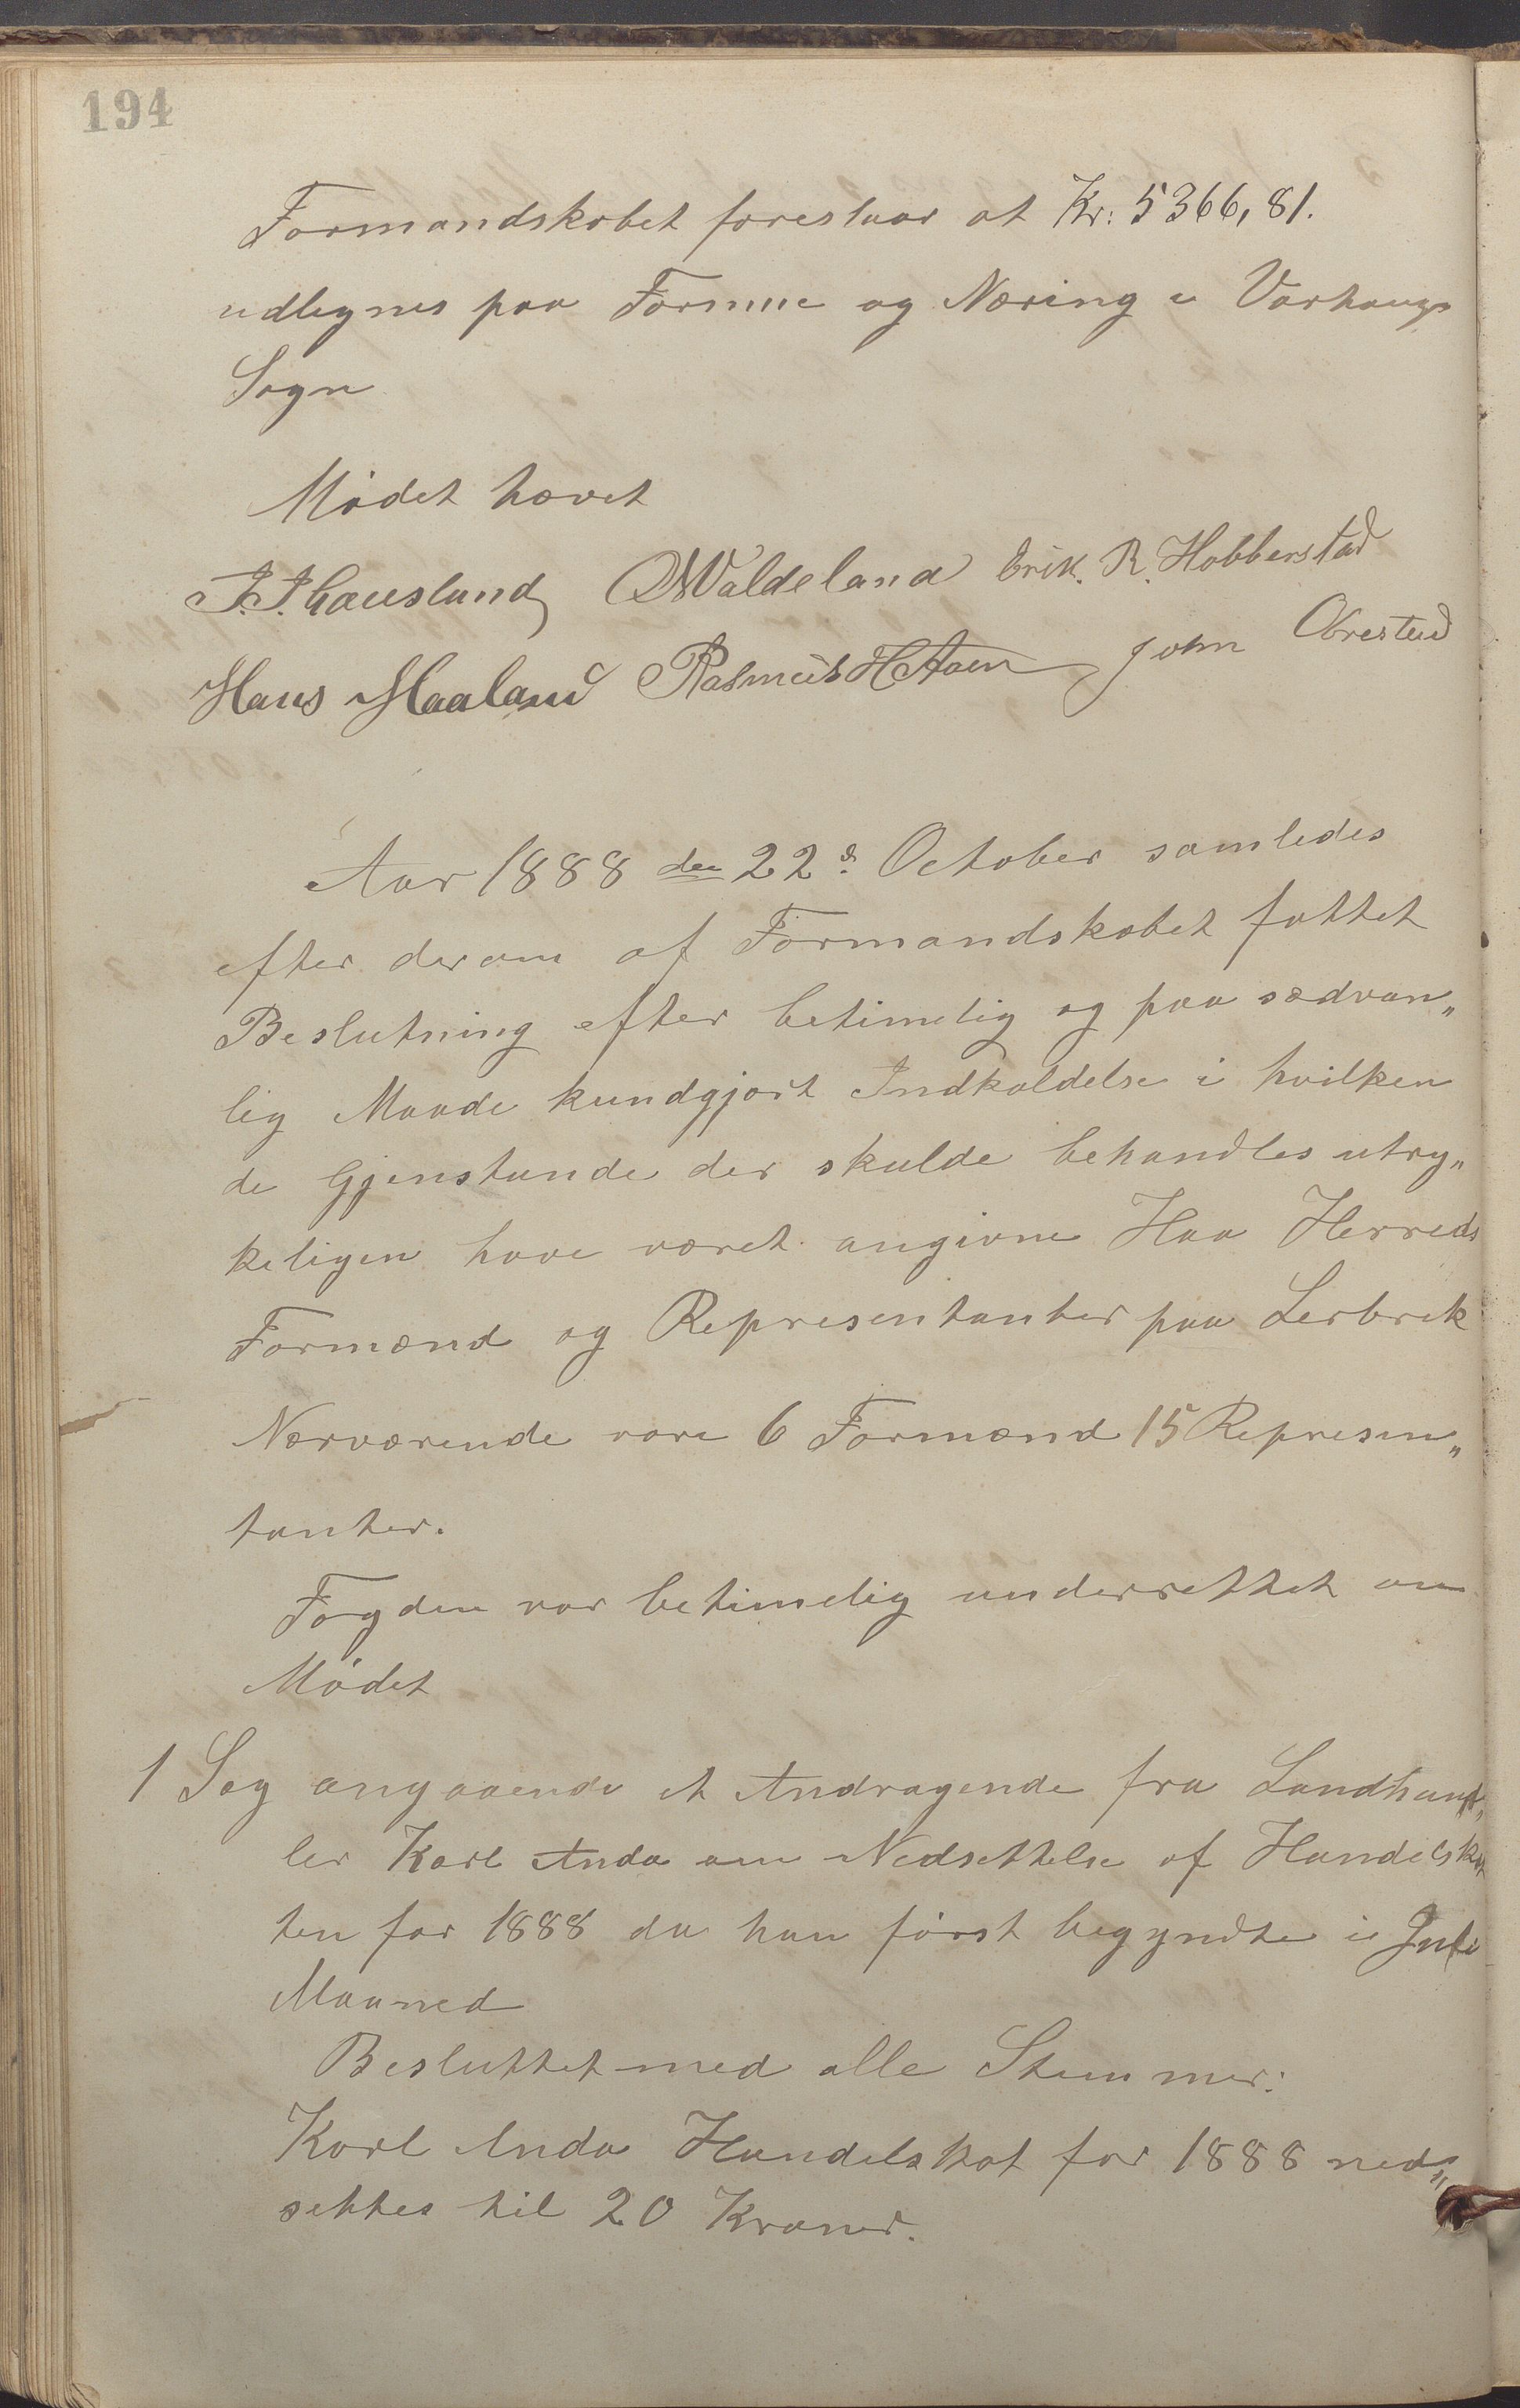 194
Formandskabet foreslaar at Kr: 5366,81.
udlignes paa Formue og Næring i Varhaugs
Sogn
Mødet hævet
O Waldeland Erik. R. Hobberstad
Hans Maaland Rasmus H Aaen John Obrestad
Aar 1888 den 22d. October samledes
efter derom af Formandskabet fattet
Beslutning efter betimelig og paa sædvan„
lig Maade kundgjort Indkaldelse i hvilken
de Gjenstande der skulde behandles utry„
keligen have været angivne Haa Herreds
Formænd og Representanter paa Lerbrek
Nærværende vare 6 Formænd 15 Represen„
tanter.
Fogden var betimelig underrettet om
Mødet
1 Sag angaaende et Andragende fra Landhand„
ler Karl Anda om Nedsettelse af Handelskat
ten for 1888 da han først begyndte i Juli
Maaned
Besluttet med alle Stemmer:
Karl Anda Handelskat for 1888 ned„
settes til 20 Kroner.